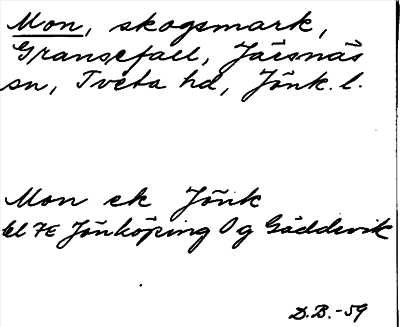 Mon, skogsmark,
Gransefall, Järsnäs
sn, Tveta hd, Jönk. l.
Mon ek Jönk
bl 7E Jönköping Og Gäddevik
D.B.-59